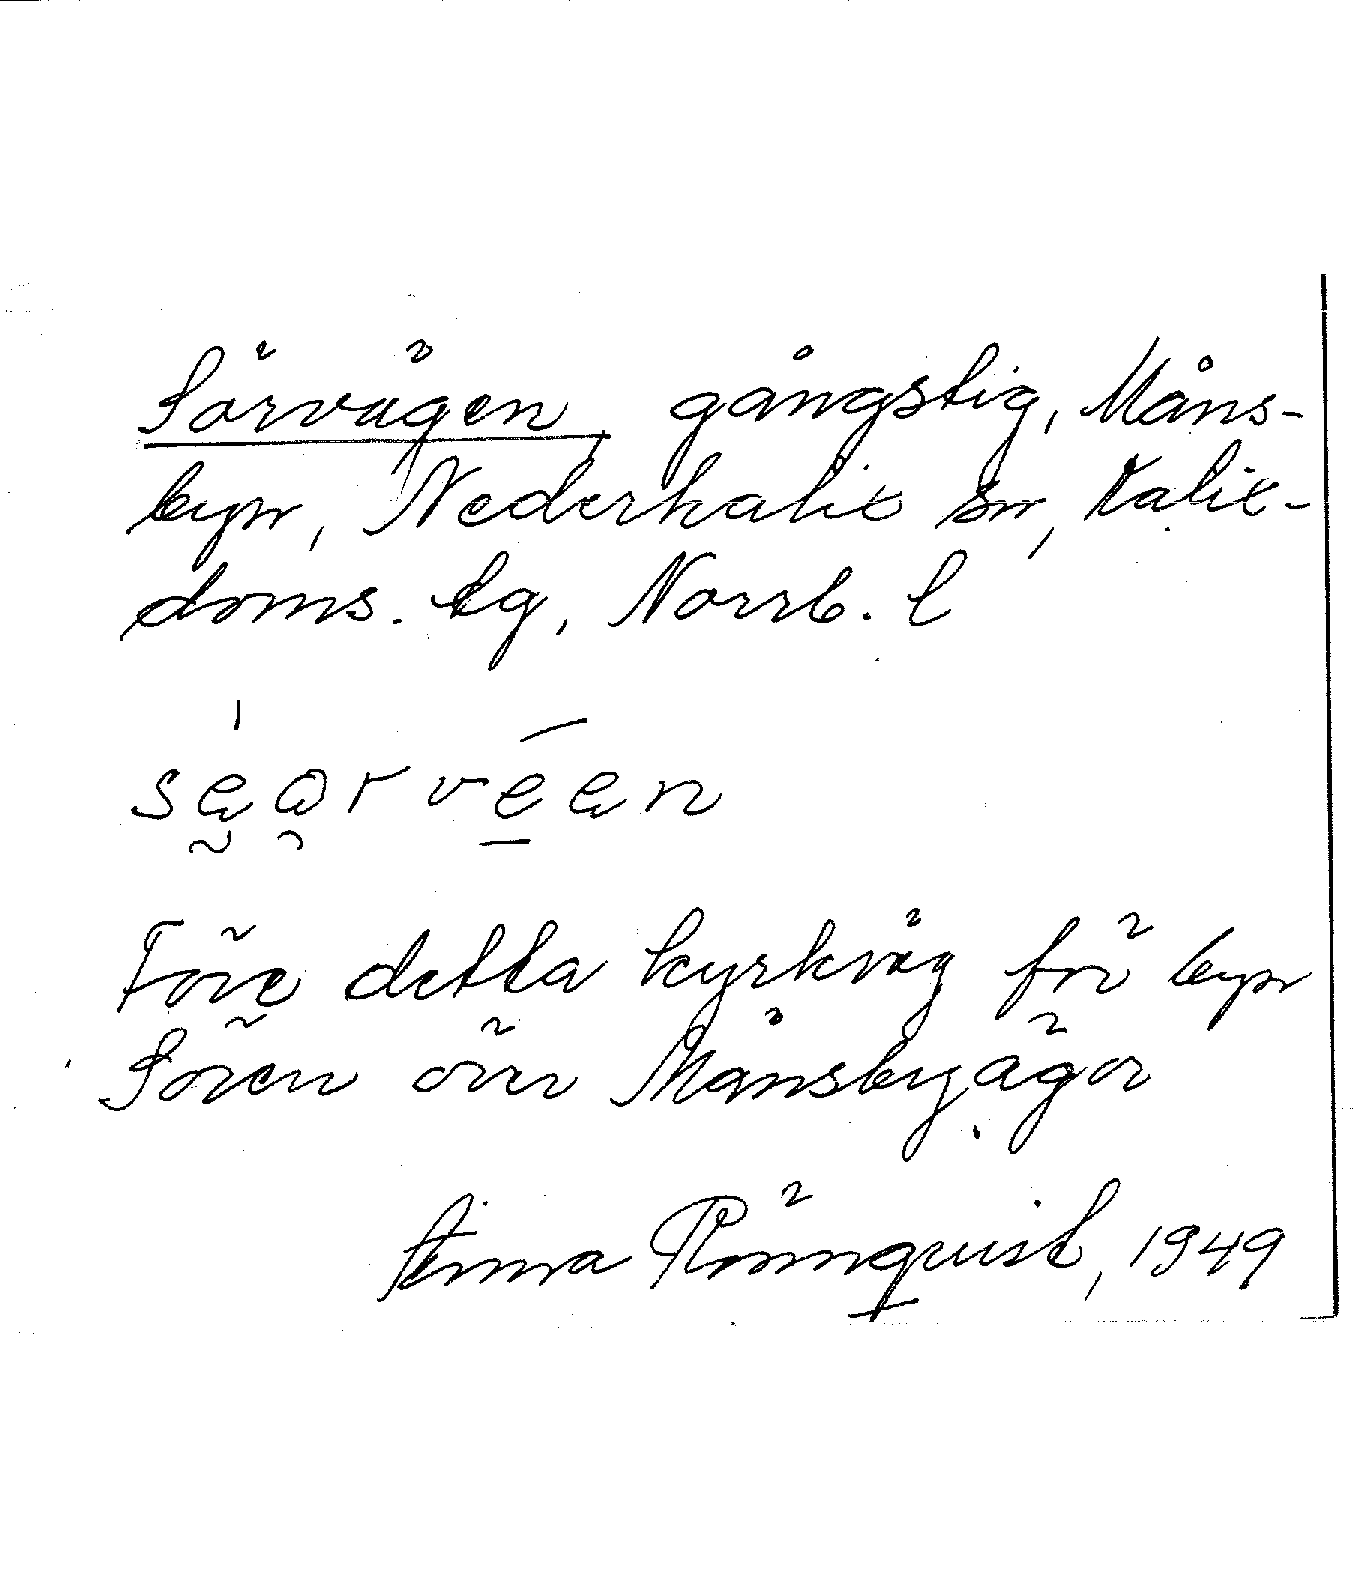 Sörvägen, gångstig, Måns-
byn, Nederkalix sn, Kalix
doms. tg, Norrb. l
Före detta kyrkväg frö byn
Sören över Månsbyägor
Anna Rönnquist, 1949